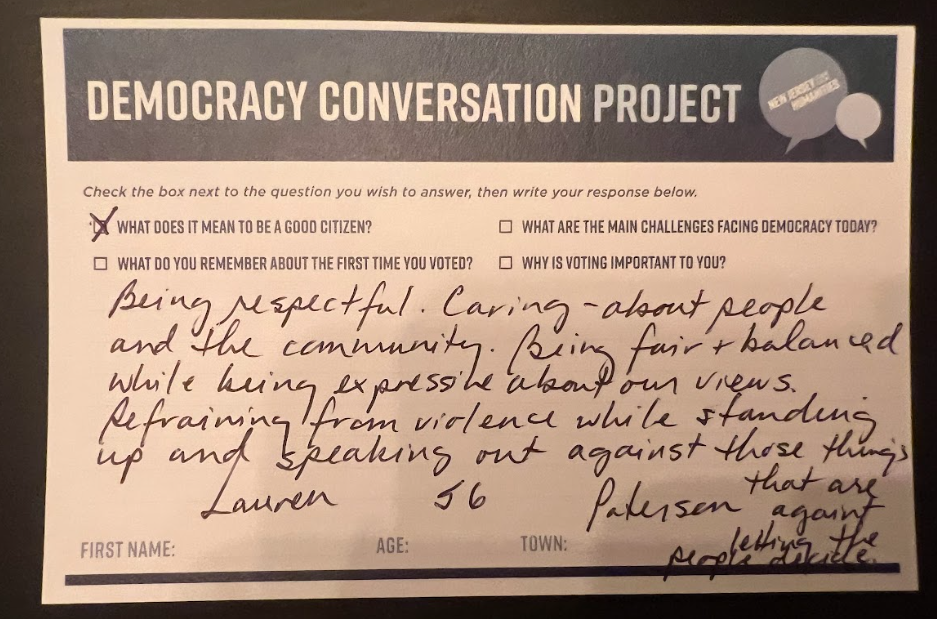 DEMOCRACY CONVERSATION PROJECT
NEW JERSEY
HUMANITIES
Check the box next to the question you wish to answer, then write your response below.
WHAT DOES IT MEAN TO BE A GOOD CITIZEN?
WHAT ARE THE MAIN CHALLENGES FACING DEMOCRACY TODAY?
WHAT DO YOU REMEMBER ABOUT THE FIRST TIME YOU VOTED?
WHY IS VOTING IMPORTANT TO YOU?
Being respectful. Caring - about people
and the community. Being fair + balanced
while being expressive about our views.
Refraining from violence while standing
up and speaking out against those things
that are
against
letting the
people decide.
Lauren 56 Paterson
FIRST NAME: AGE: TOWN: